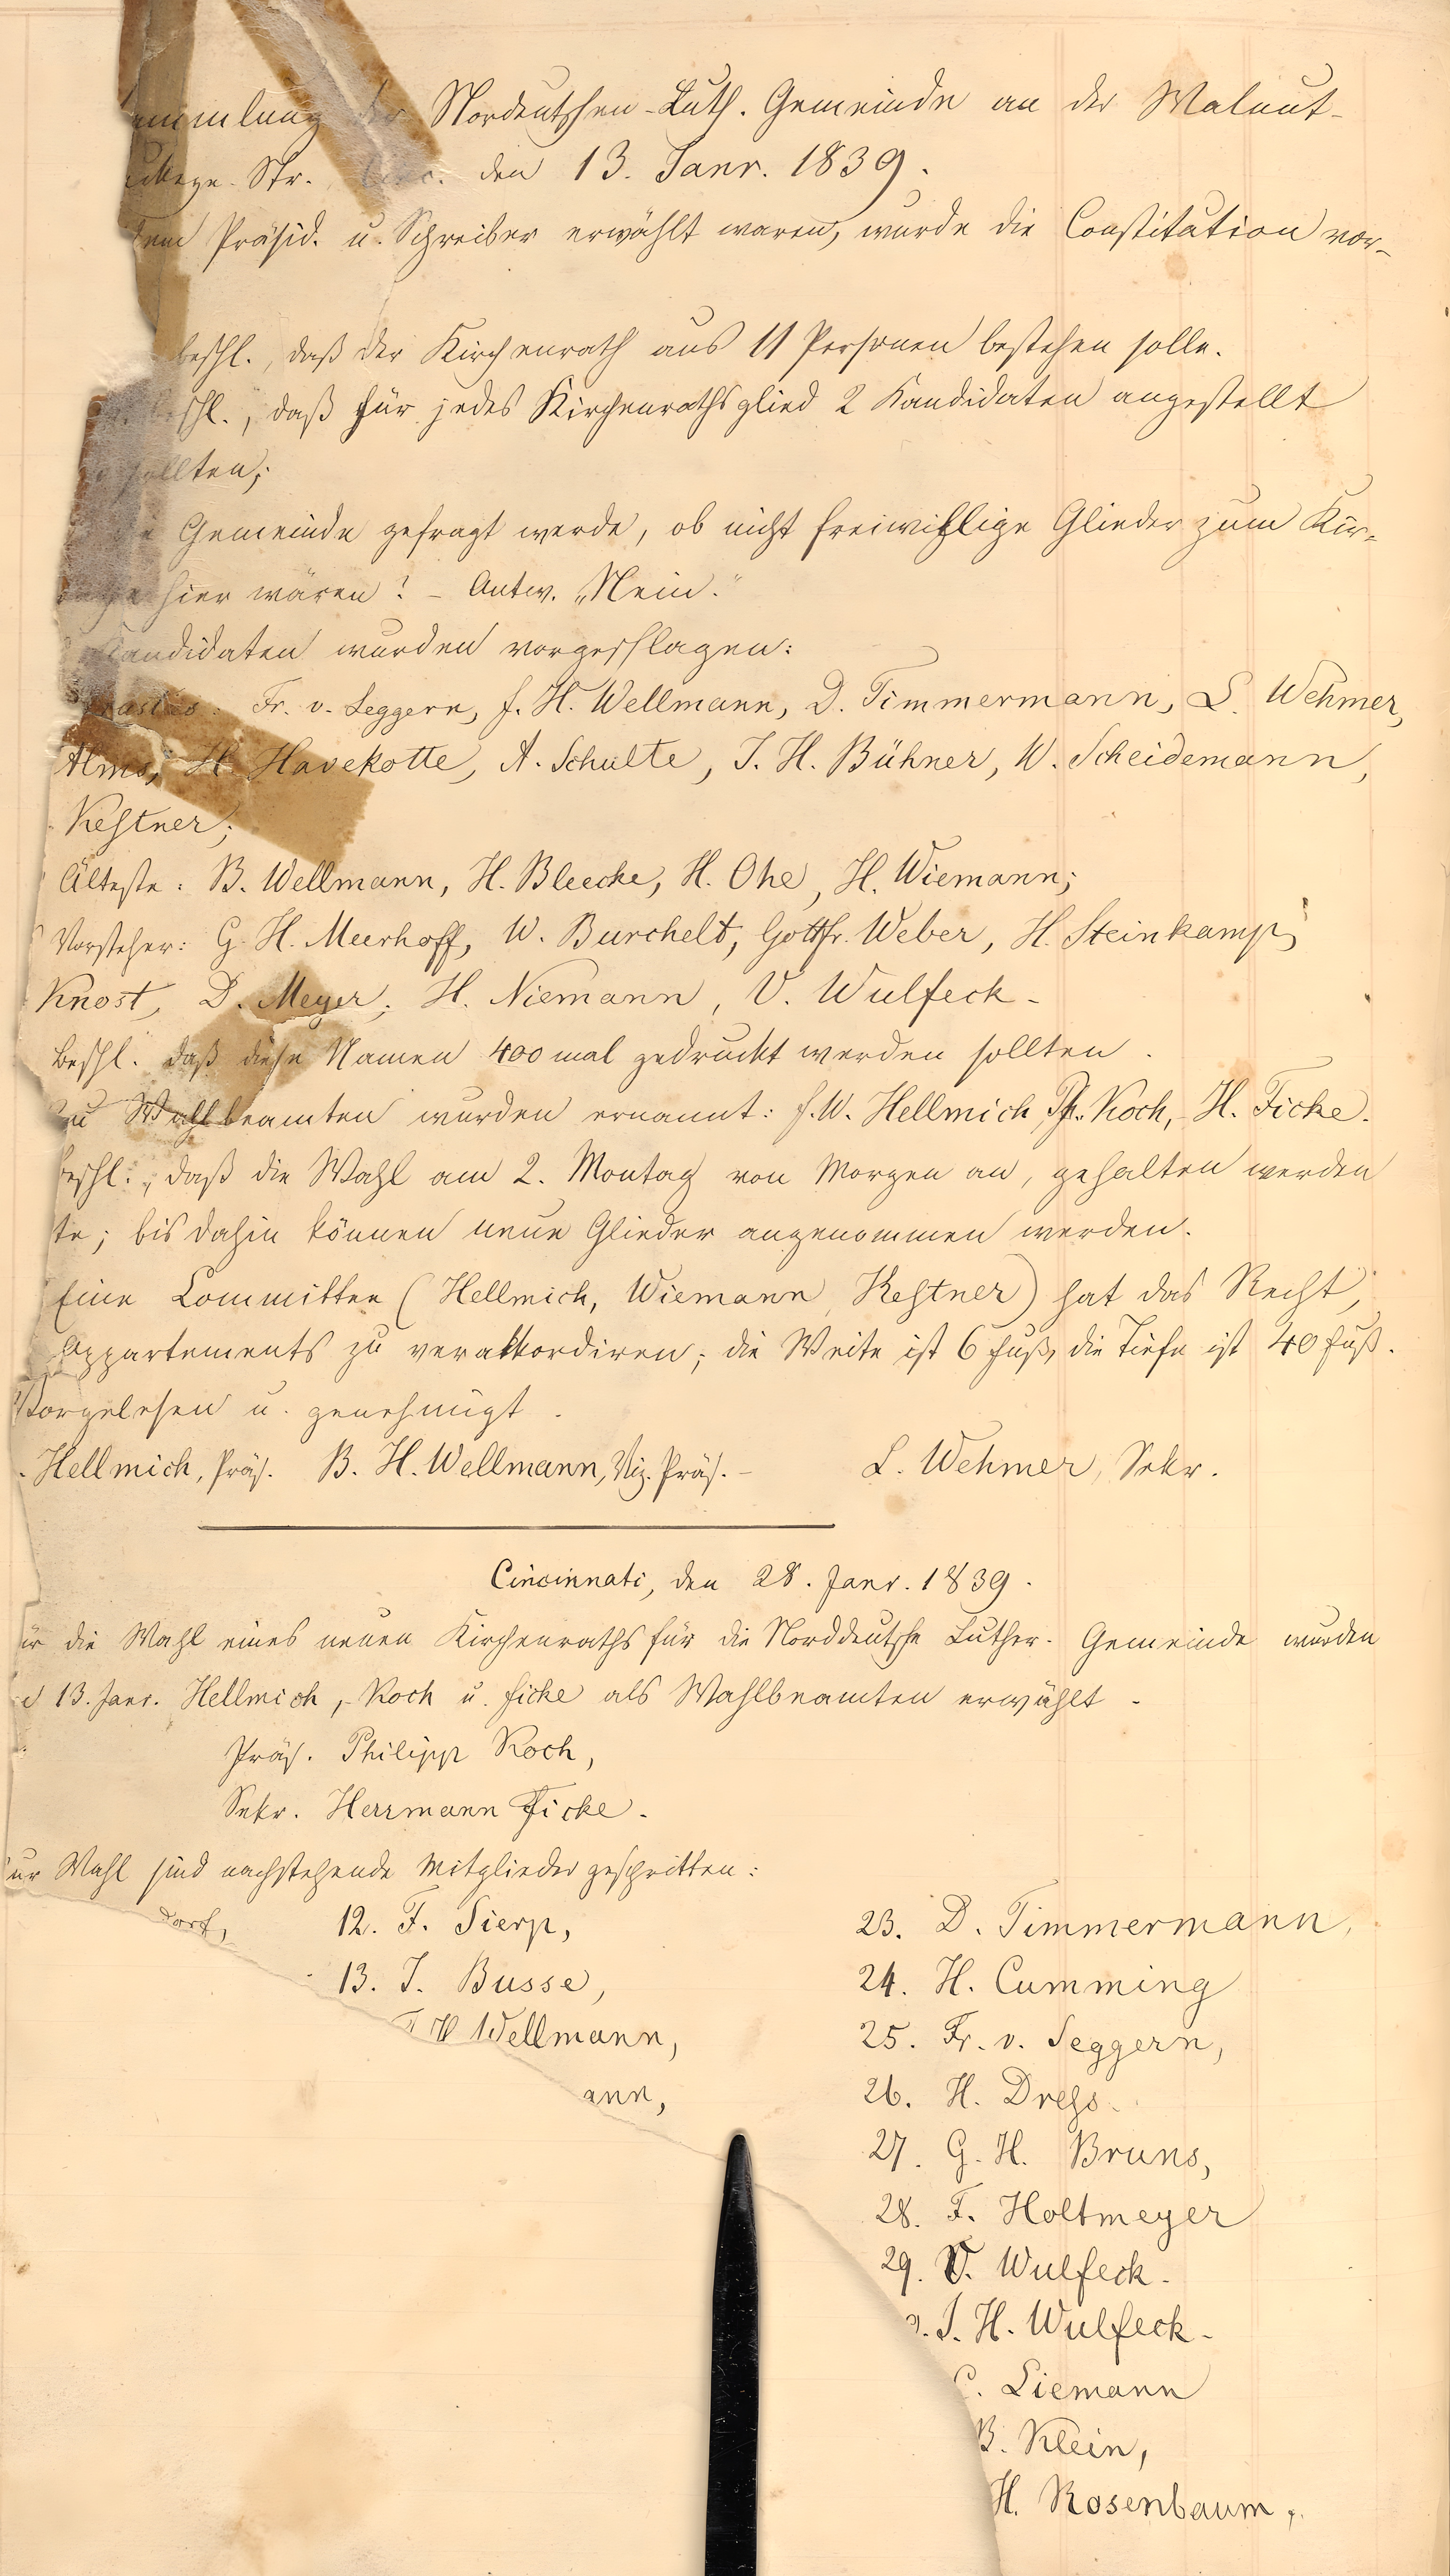 ammlung der Nordeutschen-Luth. Gemeinde an der Walnut-
Str. den 13. Janr. 1839.
dem Präsid. u. Schreiber erwählt waren, wurde die Constitution vor-
beschl., daß der Kirchenrath aus 11 Personen bestehen solle.
schl., daß für jedes Kirchenrathsglied 2 Kandidaten angestellt
sollten;
Gemeinde gefragt werde, ob nicht freiwillige Glieder zum Kir-
hier wären? – Antw. „Nein."
Kandidaten wurden vorgeschlagen:
Trastees: Fr. v. Seggern, F. H. Wellmann, D. Timmermann, L. Wehmer,
Alms, H. Havekotte, A. Schulte, J. H. Bühner, W. Scheidemann,
Kestner;
Älteste: B. Wellmann, H. Bleecke, H. Ohe, H. Wiemann;
Vorsteher: G. H. Meerhoff, W. Burchelt, Gottfr. Weber, H. Steinkamp,
Knost, D. Meyer, H. Niemann, V. Wulfeck.
Beschl. daß diese Namen 400 mal gedruckt werden sollten.
Zu Wahlbeamten wurden ernannt: F. W. Hellmich, Ph. Koch, H. Ficke.
beschl., daß die Wahl am 2. Montag von Morgen an, gehalten werden
te; bis dahin können neue Glieder angenommen werden.
Eine Committee (Hellmich, Wiemann, Kestner) hat das Recht,
Appartements zu verakkordiren; die Weite ist 6 Fuß, die Tiefe ist 40 Fuß.
Vorgelesen u. genehmigt.
. Hellmich, Präs. B. H. Wellmann, Viz. Präs. – L. Wehmer, Sekr.
Cincinnati, den 28. Janr. 1839.
ür die Wahl eines neuen Kirchenraths für die Norddeutsche Luther. Gemeinde wurden
13. Janr. Hellmich, Koch u. Ficke als Wahlbeamten erwählt.
Präs. Philipp Koch,
Sekr. Herrmann Ficke.
ur Wahl sind nachstehende Mitglieder geschritten:
dorf,
12. F. Sierp,
13. J. Busse,
H Wellmann,
ann,
23. D. Timmermann,
24. H. Cumming
25. Fr. v. Seggern,
26. H. Dress.
27. G. H. Bruns,
28. F. Holtmeyer
29. V. Wulfeck.
. J. H. Wulfeck.
C. Siemann
B. Klein,
H. Rosenbaum,